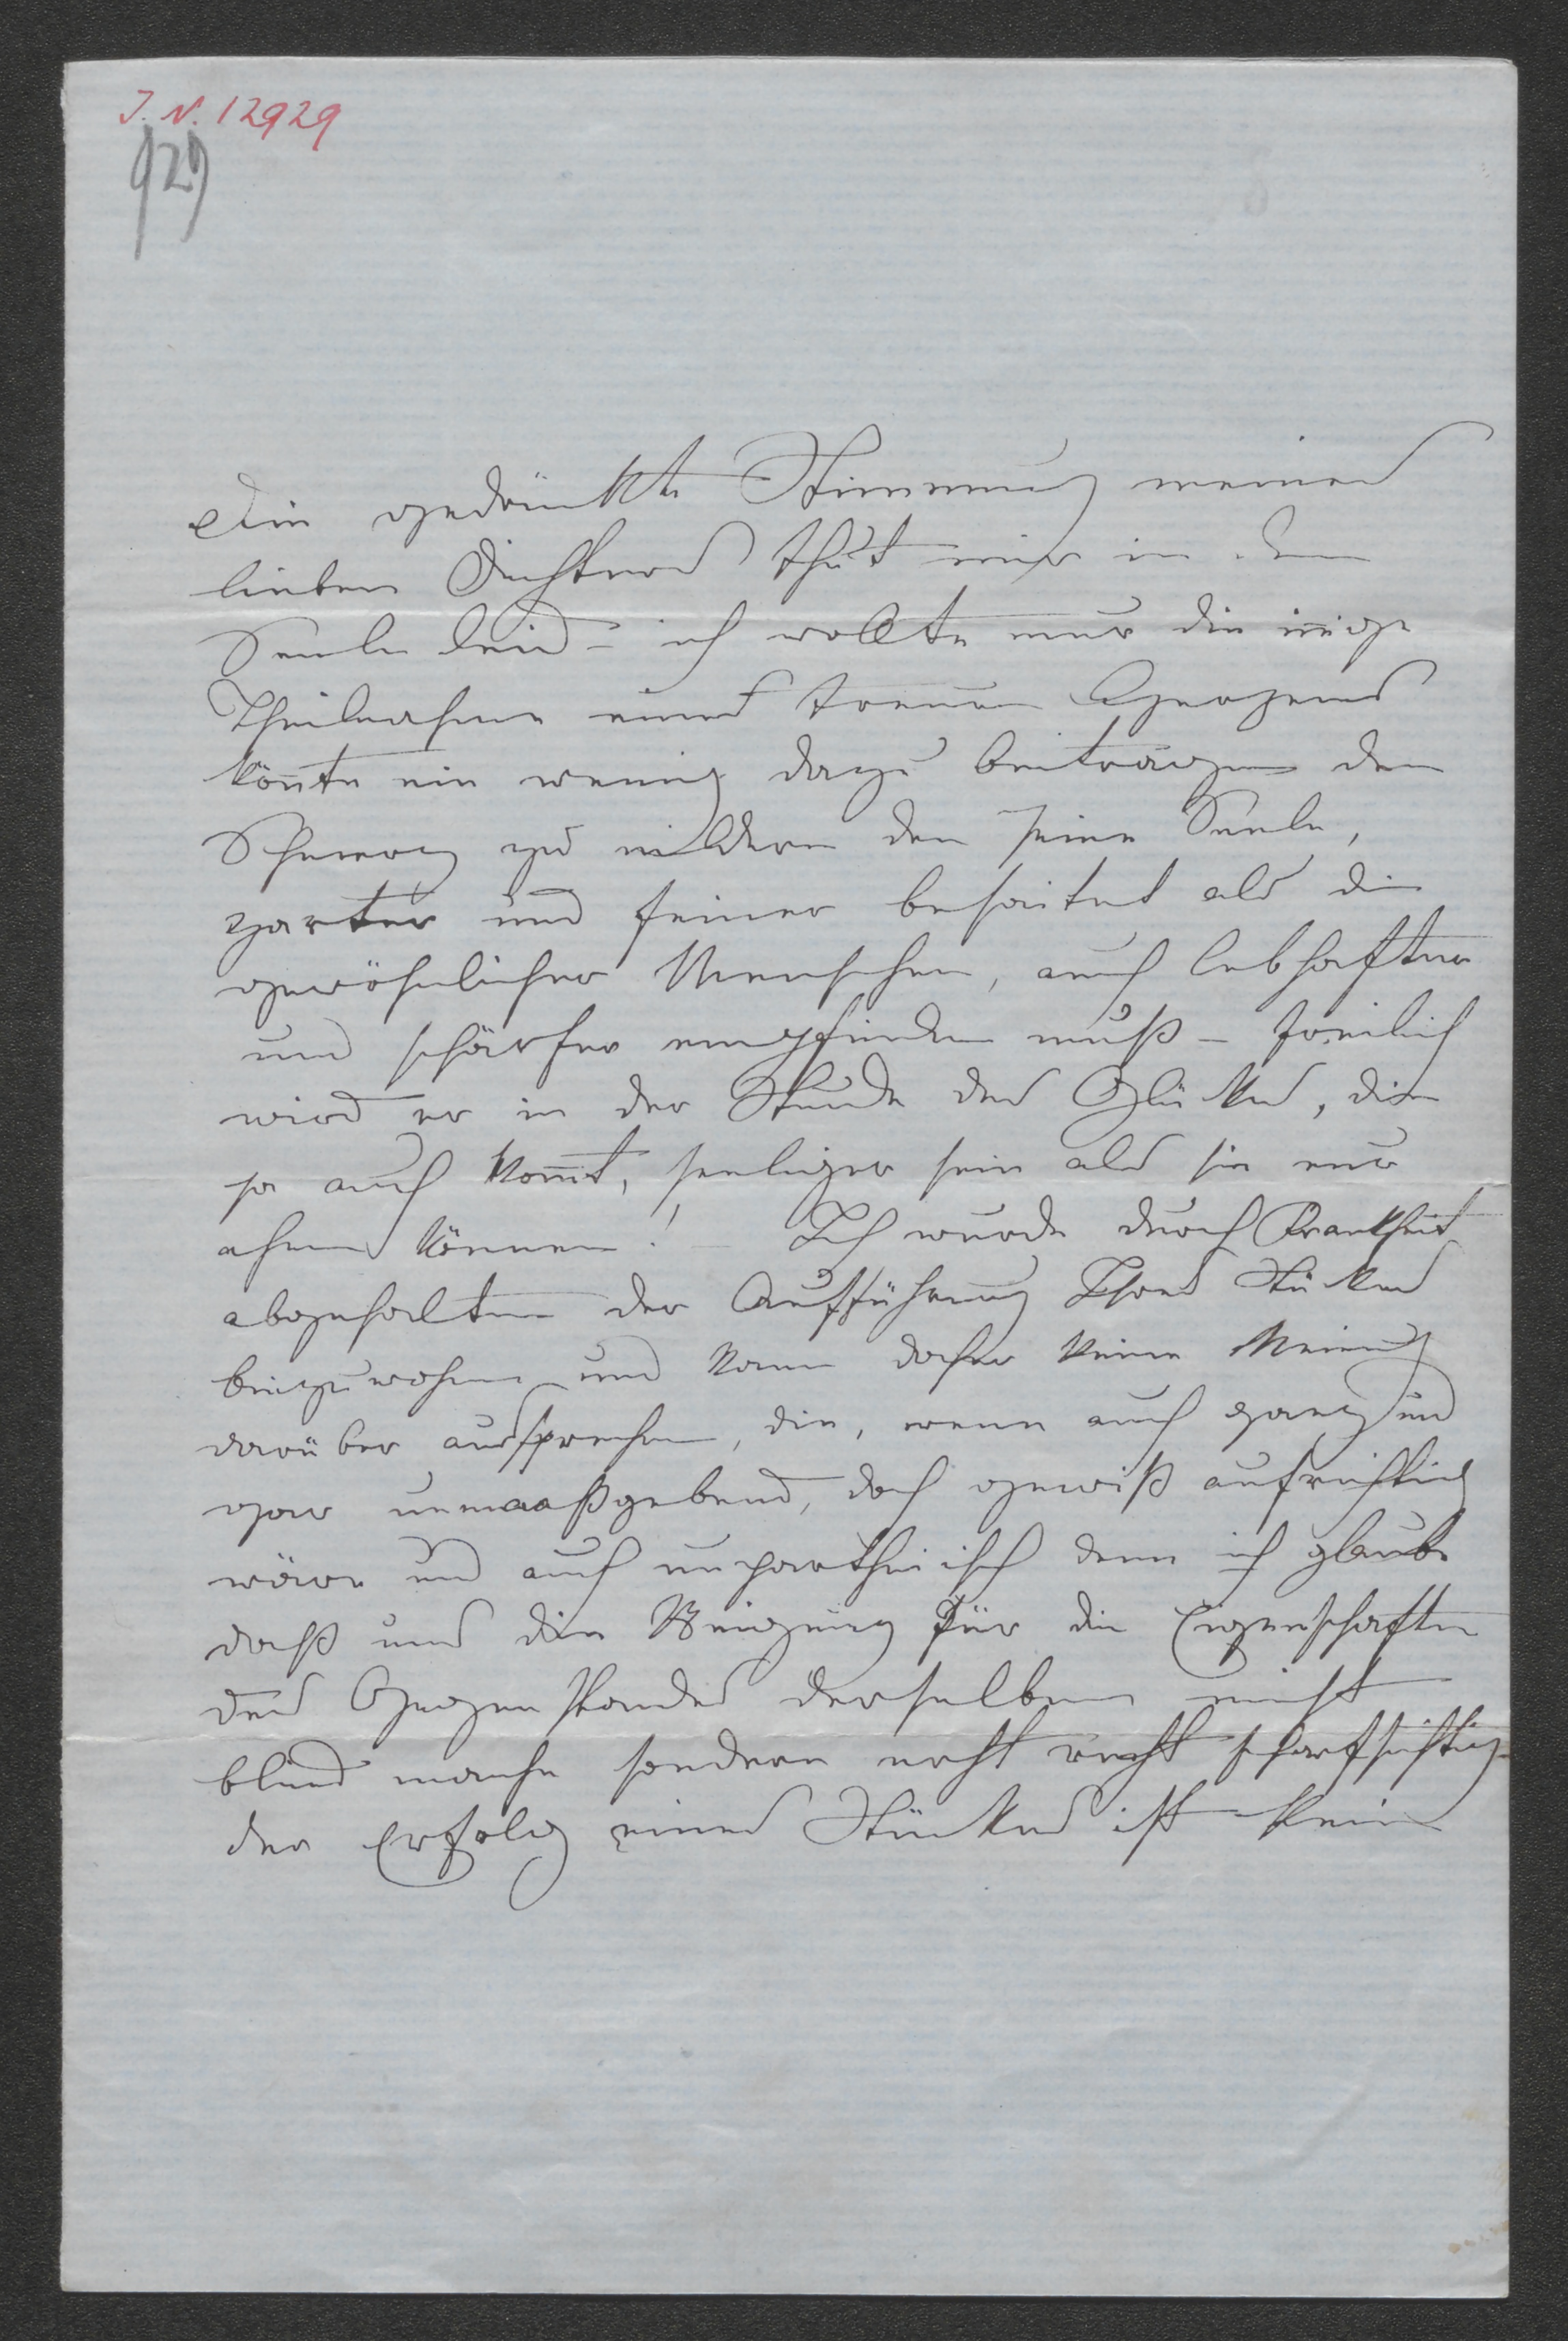 J. N. 12929
929
Die gedrückte Stimmung meines
lieben Dichters thut mir in der
Seele leid – ich wollte nur die innige
Theilnahme eines treuen Herzens
könnte ein wenig dazu beitragen den
Schmerz zu mildern den seine Seele,
zarter und feiner besaitet als die
gewöhnlicher Menschen, auch lebhafter
und schärfer empfinden muß – freilich
wird er in der Stunde des Glückes, die
ja auch kom̅t, seeliger sein als sie nur
ahnen können! – Ich wurde durch Krankheit
abgehalten der Aufführung Ihres Stückes
beizuwohnen und kann daher keine Meinung
darüber aussprechen, die, wenn auch ganz und
gar unmaaßgebend, doch gewiß aufrichtig
wäre und auch unpartheiisch denn ich glaube
daß uns die Neigung für die Eigenschaften
des Gegenstandes derselben nicht
blind mache sondern erst recht scharfsichtig –
der Erfolg eines Stückes ist kein